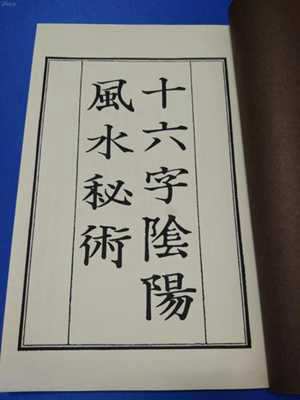 十六字陰陽
風水秘術